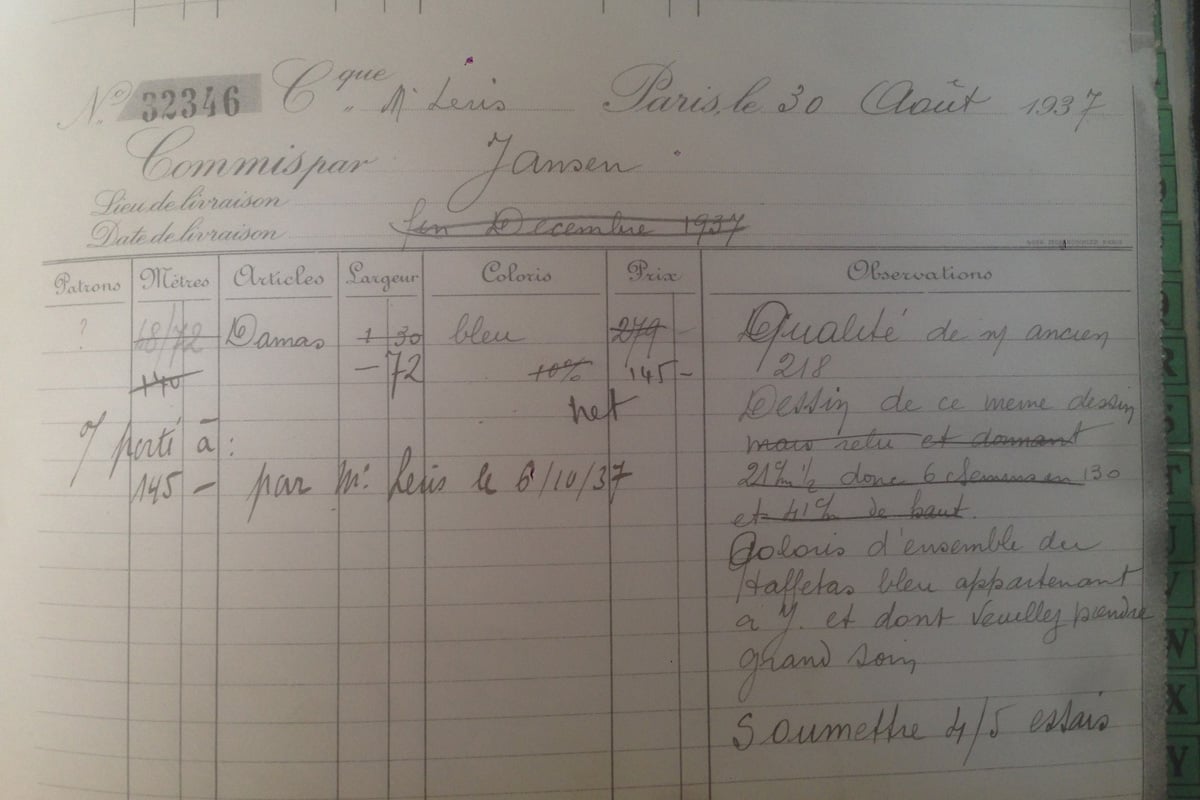 No. 32346 Cque " Mr Leris Paris, le 30 Août 1937
Commis par Jansen
Lieu de livraison
Date de livraison fin Decembre 1937
Patrons Mètres Articles Largeur Coloris Prix Observations
? 68/72 Damas 1 30 bleu 279 - Qualité de n/ ancien
140 - 72 10% 145 - 218
net Dessin de ce meme dessin
porté à : mais relu et donnant
145 - par Mr. Leris le 6/10/37 21 c/m ½ donc 6 chemins en 130
et 41 c/m de haut.
Coloris d'ensemble du
taffetas bleu appartenant
a J. et dont veuillez prendre
grand soin
Soumettre 4/5 essais